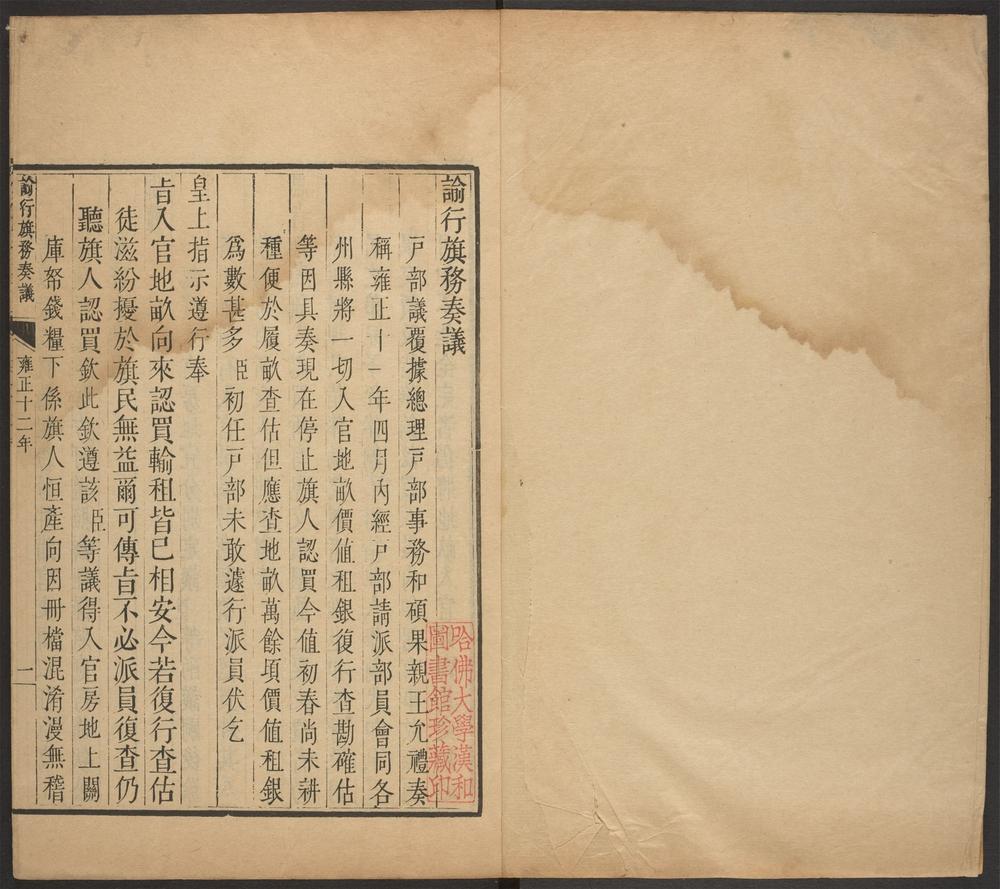 諭行旗務奏議
戸部議覆據總理戸部事務和碩果親王允禮奏
稱雍正十一年四月內經戸部請派部員會同各
州縣將一切入官地畝價值租銀復行查勘確估
等因具奏現在停止旗人認買今值初春尚未耕
種便於履畝查估但應查地畝萬餘頃價值租銀
爲數甚多臣初任戸部未敢遽行派員伏乞
皇上指示遵行奉
旨入官地畝向來認買輸租皆已相安今若復行查估
徒滋紛擾於旗民無益爾可傳旨不必派員復查仍
聽旗人認買欽此欽遵該臣等議得入官房地上關
庫帑錢糧下係旗人恒產向因冊檔混淆漫無稽
諭行旗務奏議
雍正十二年
一
哈佛大學漢和
圖書館珍藏印